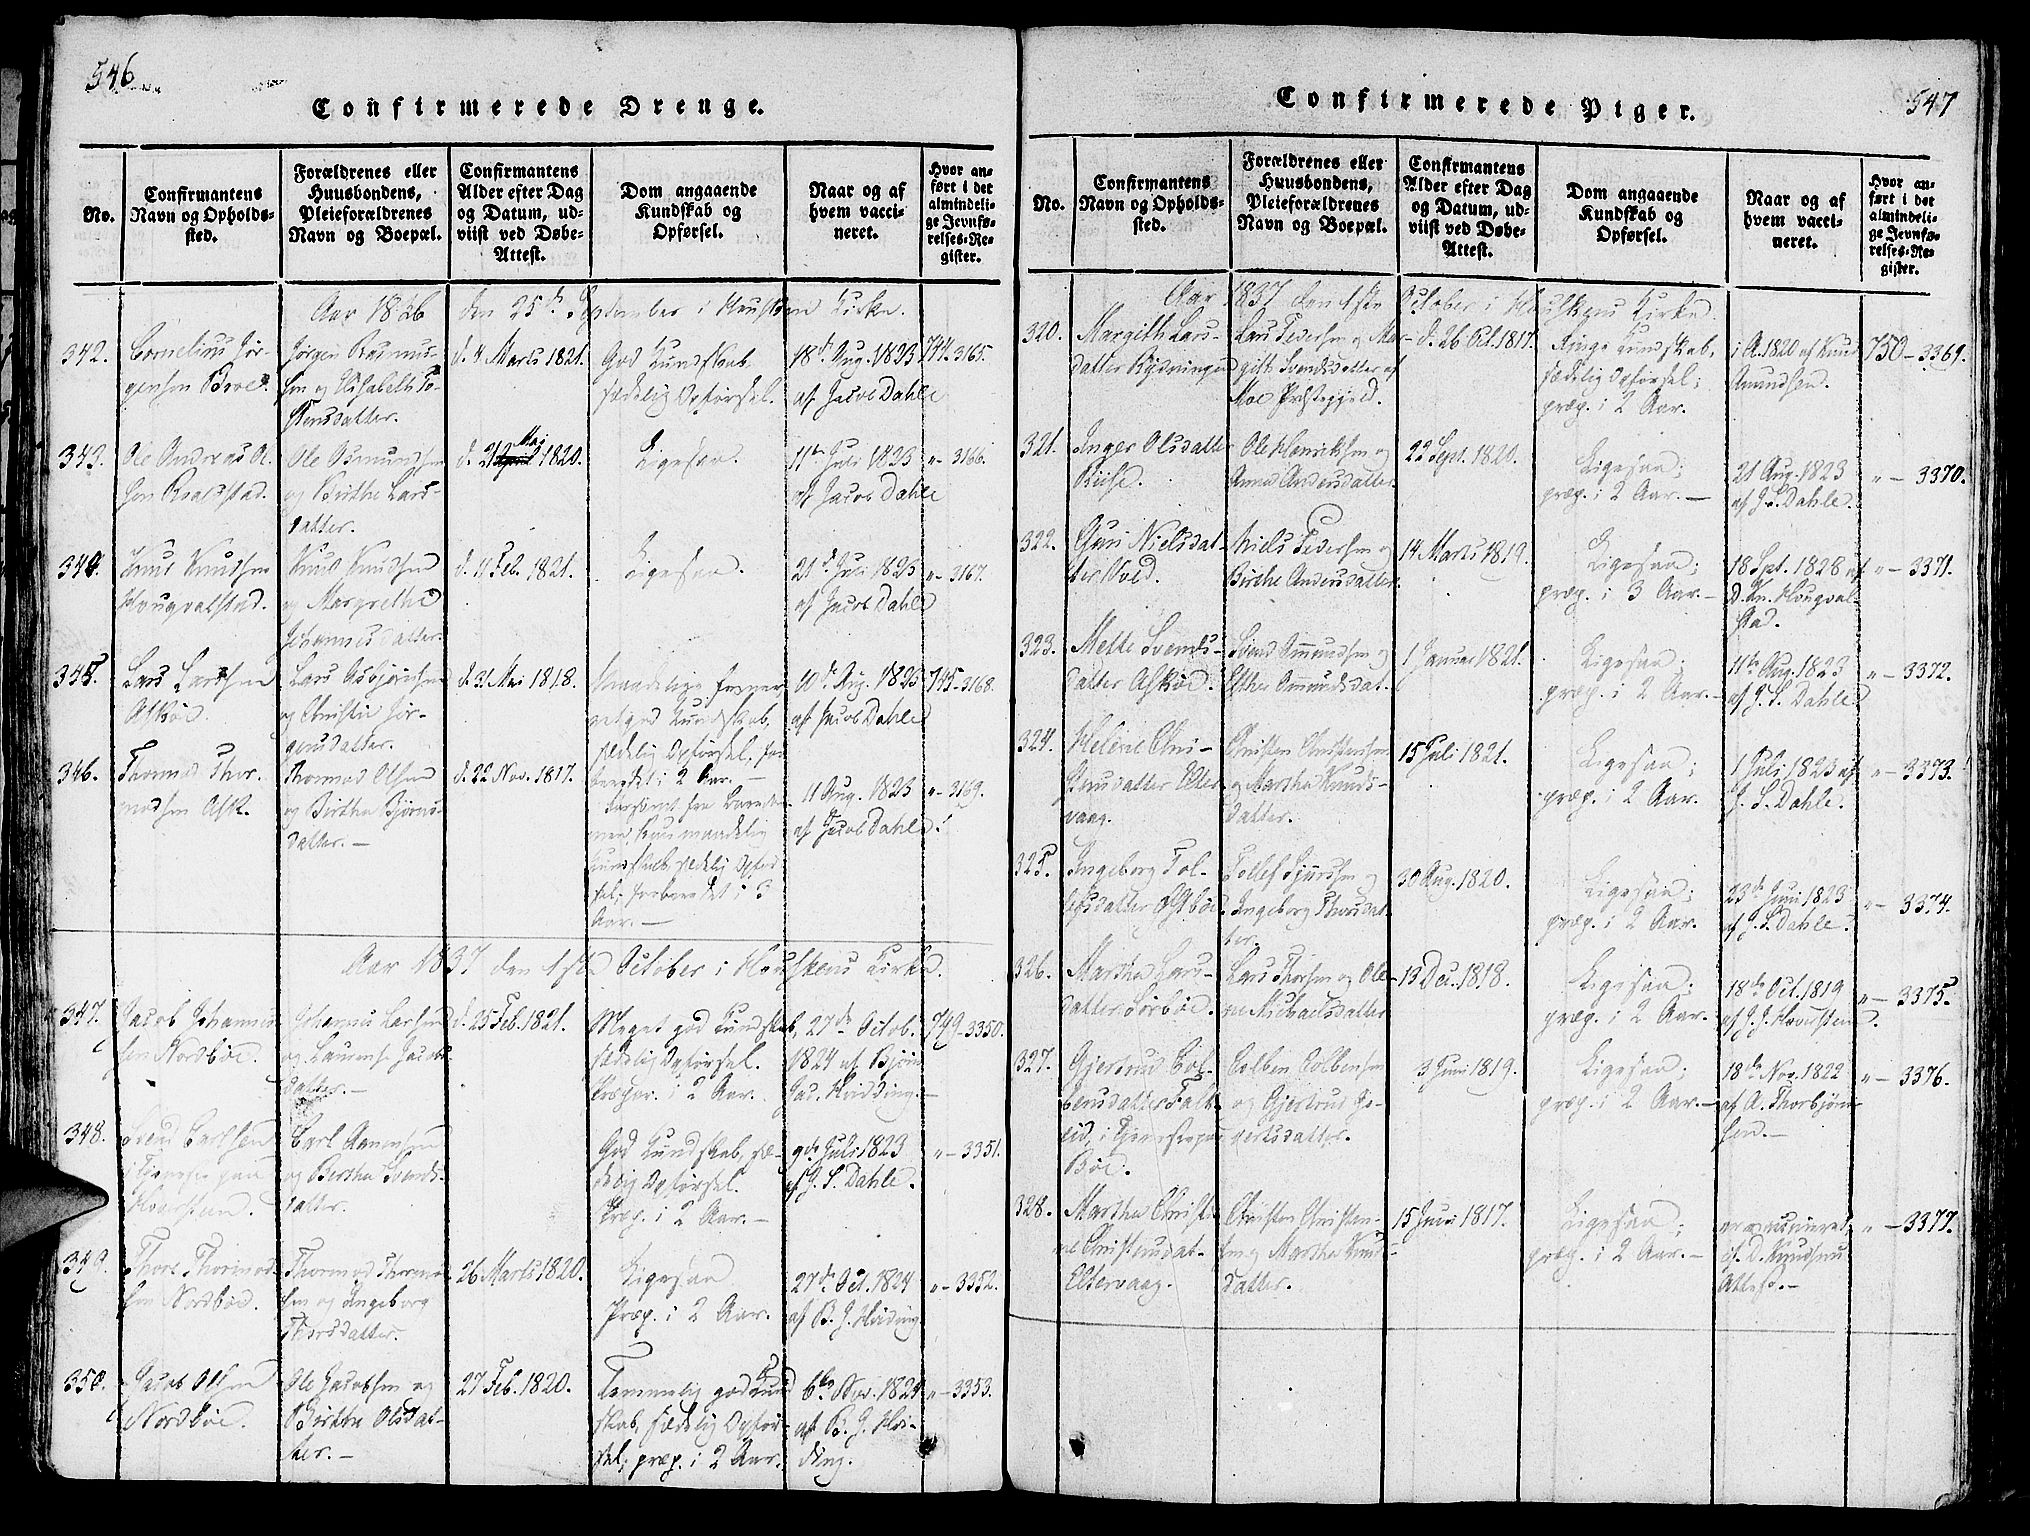 546
Confirmerede Drenge.
No.
Confirmantens
Navn og Opholds-
sted.
Forældrenes eller
Huusbondens,
Pleieforældrenes
Navn og Boepæl.
Confirmantens
Alder efter Dag
og Datum, ud-
viist ved Døbe-
Attest.
Dom angaaende
Kundskab og
Opførsel.
Naar og af
hvem vacci-
neret.
Hvor an-
ført i det
almindeli-
ge Jevnfø-
relses-Re-
gister.
Aar 1836 den 25de September i Hauskens Kirke.
342.
Cornelius Jør-
gensen Boe.
Jørgen Rasmus-
sen og
datter.
d. 4 Marts 1821.
God Kundskab,
sædelig Opførsel.
18de Aug. 1823
af Jacob Dahle
744. 3165.
343.
Ole Andreas Ol-
sen
Ole Asmundsen
og Birthe Lars-
datter.
d. 21 Mai 1820.
Ligesaa.
11te Juli 1823
af Jacob Dahle
" - 3166.
344.
Knud Knudsen
Hougvalstad.
Knud Knudsen
og Margrethe
Johannesdatter.
d. 11 Feb. 1821.
Ligesaa.
21de Juli 1823
af Jacob Dahle
" - 3167.
345.
Lars Larsen
Askøe.
Lars Asbjørnsen
og Christie Jør-
gensdatter.
d. 31 Mai 1818.
Kundskab,
sædelig Opførsel, for-
beredet i 2 Aar. -
10de Aug. 1823
af Jacob Dahle
745-3168.
346.
Thormod Thor-
modsen Ask.
Thormod Olsen
og Birtha Bjørns-
datter. -
d. 22 Nov. 1817.
maadelig
Kundskab, sædelig Opfør-
sel; forberedet i 3
Aar. -
11 Aug. 1823
af Jacob Dahle.
" - 3169.
Aar 1837 den 1ste October i Hauskens Kirke.
347.
Jacob Johannes-
sen Nordbøe.
Johannes Larsen
og Laurense Jacobs-
datter. -
d. 25 Feb. 1821.
Meget god Kundskab,
sædelig Opførsel.
Præpar. i 2 Aar.
27de Octob.
1824 af Bjørn
Jac. Hvidding. -
749-3350.
348.
Svend Carlsen
i Tjeneste paa
Hoversteen.
Carl Aanensen
og Bertha Svends-
datter.
God Kundskab, sæ-
delig Opførsel.
Præp. i 2 Aar. -
9de Juli 1823
af J. S. Dahle.
" - 3351.
349.
Thore Thormod-
sen Nordbøe.
Thormod Thormod-
sen og Ingeborg
Thorsdatter.
26 Marts 1820.
Ligesaa
Præp. i 2 Aar.
27de Oct. 1824
af B. J. Hviding.
" - 3352.
350.
Jacob Olsen
Nordbøe.
Ole Jacobsen og
Birthe Olsdat-
ter. -
27 Feb. 1820.
Temmelig god Kund-
skab, sædelig Opfør-
sel; præp. i 2 Aar.
6te Nov. 1824
af B. J. Hvi-
ding.
" - 3353.
547
Confirmerede Piger.
No.
Confirmantens
Navn og Opholds-
sted.
Forældrenes eller
Huusbondens,
Pleieforældrenes
Navn og Boepæl.
Confirmantens
Alder efter Dag
og Datum, ud-
viist ved Døbe-
Attest.
Dom angaaende
Kundskab og
Opførsel.
Naar og af
hvem vacci-
neret.
Hvor an-
ført i det
almindeli-
ge Jevnfø-
relses-Re-
gister.
Aar 1837 den 1ste October i Hauskens Kirke.
320.
Margith Lars-
datter Rydningen
Lars Pedersen og Mar-
gith Svendsdatter af
Moe Præstegjeld.
d. 26 Oct. 1817.
Ringe Kundskab,
sædelig Opførsel;
præp. i 2 Aar.
i A. 1820 af Knud
Amundsen.
750 - 3369.
321.
Inger Olsdatter
Riise.
Ole Henriksen og
Anne Andersdatter.
22 Sept. 1820.
Ligesaa;
præp. i 2 Aar. -
21 Aug. 1823
af J. S. Dahle.
" - 3370.
322.
Guri Nielsdat-
ter Vold.
Niels Pedersen og
Birthe Andersdatter.
14 Marts 1819.
Ligesaa;
præp. i 3 Aar. -
18 Spt. 1828 af
D. Kn. Hougval-
stad.
" - 3371.
323.
Mette Svends-
datter Askøe.
Svend Omundsen og
Esther Omundsdat-
1 Januar 1821.
Ligesaa;
præp. i 2 Aar. -
11te Aug. 1823
af J. S. Dahle
" - 3372.
324.
Helene Chri-
stensdatter Elter-
vaag.
Christen Christensen
og Martha Knuds-
datter.
15 Juli 1821.
Ligesaa;
præp. i 2 Aar.
1 Juli 1823 af
J. S. Dahle.
" - 3373.
325.
Ingeborg Tol-
lefsdatter Østbøe.
Tollef Sjursen og
Ingeborg Thorsdat-
ter.
30 Aug. 1820.
Ligesaa;
præp. i 2 Aar.
23de Juni 1823
af J. S. Dahle.
" - 3374.
326.
Martha Lars-
datter Sørbøe.
Lars Thorsen og Ole-
ne Michaelsdatter
13 Dec. 1818.
Ligesaa;
præp. i 2 Aar.
18de Oct. 1819
af J. J. Hoversteen.
" - 3375.
327.
Gjertrud Col-
bensdatter Falk-
eid, i Tjeneste paa
Bøe.
Colben Colbensen
og Gjertrud Gi-
vertsdatter.
3 Juni 1819.
Ligesaa;
præp. i 2 Aar. -
18de Nov. 1822
af A. Thorbjørn-
sen. -
" - 3376.
328.
Martha Christi-
ne Christensdat-
Eltervaag.
Christen Christen-
sen og Martha Knuds-
datter.
15 Juni 1817.
Ligesaa;
præp. i 2 Aar. -
af D. Knudsen
" - 3377.